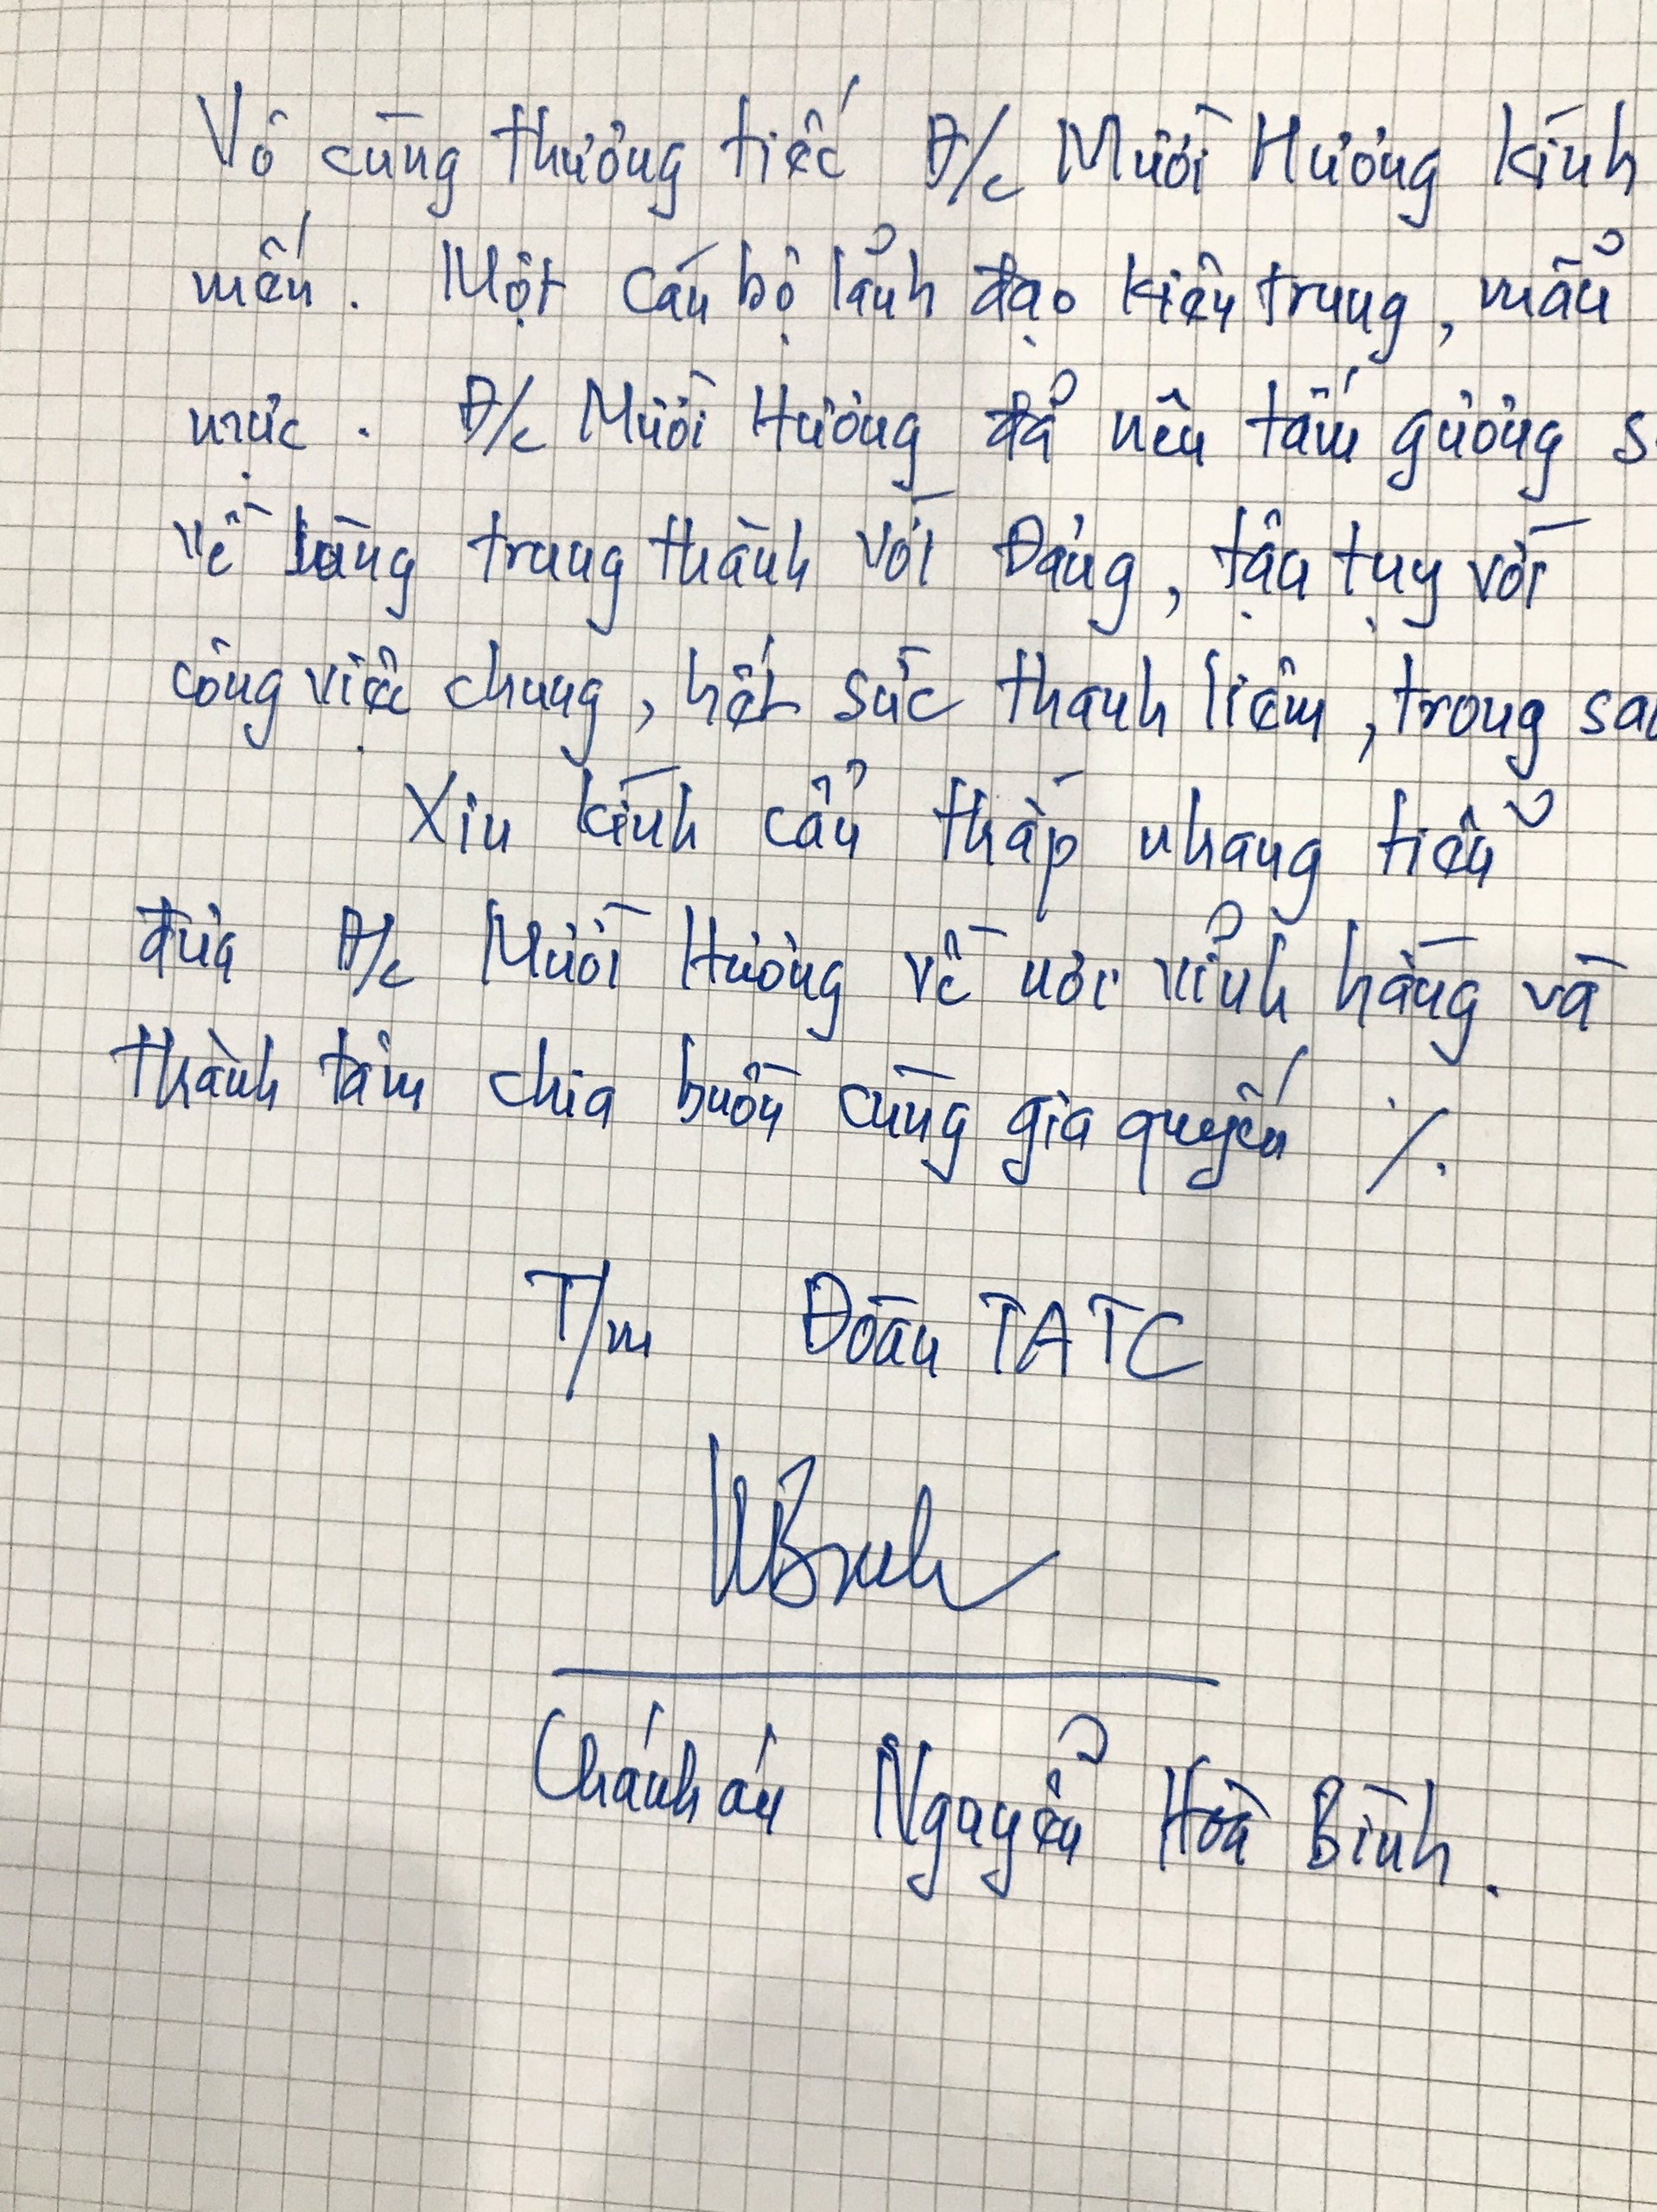 Vô cùng thương tiếc Đ/c Mười Hương kính
mến. Một cán bộ lãnh đạo kiên trung, mẫu
mực. Đ/c Mười Hương đã nêu tấm gương
về lòng trung thành với Đảng, tận tụy với
công việc chung, hết sức thanh liêm, trong
Xin kính cẩn thắp nhang tiễn
đưa Đ/c Mười Hương về nơi vĩnh hằng và
thành tâm chia buồn cùng gia quyến ./.
T/m Đoàn TATC
Chánh án Nguyễn Hoà Bình.